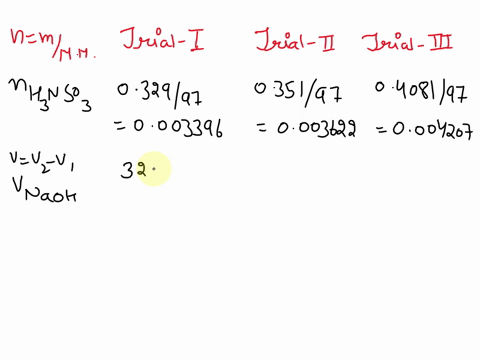 n=m/M.M. Trial-I Trial-II Trial-III
nH3NSO3 0.329/97 0.351/97 0.4081/97
= 0.003396 = 0.003622 = 0.004207
V=V2-V1 32.
VNaOH